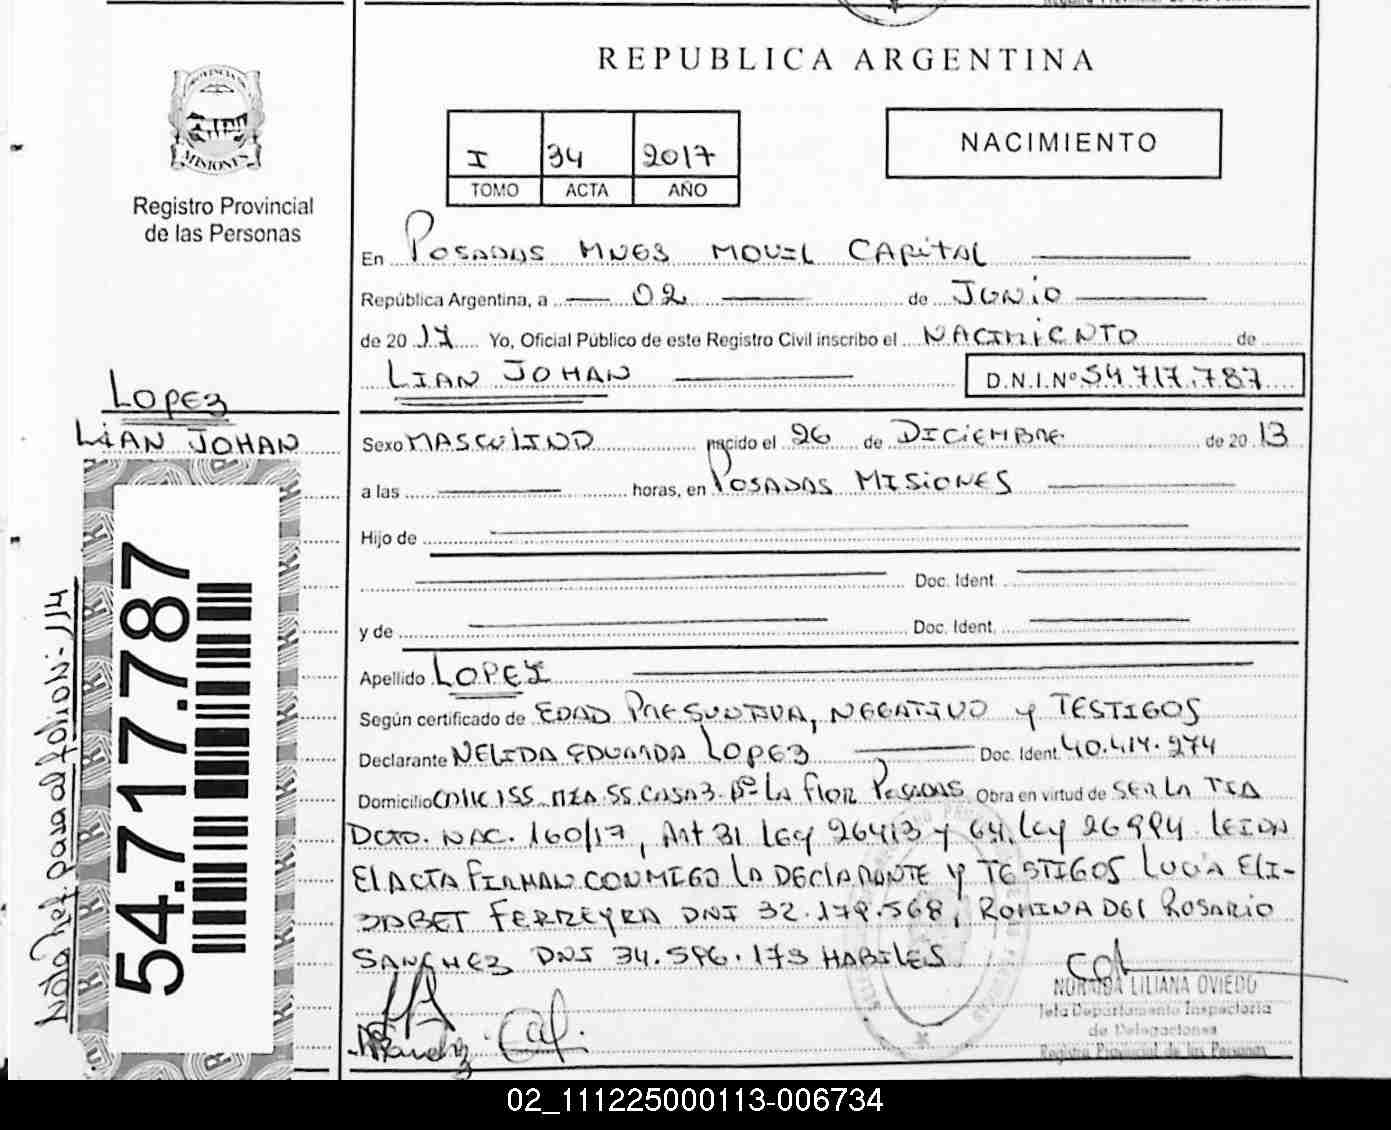 REPUBLICA ARGENTINA
PROVINCIA DE
MISIONES
Registro Provincial
de las Personas
I 34 2017
TOMO ACTA AÑO
NACIMIENTO
En POSADAS MNES MOVIL CAPITAL
República Argentina, a 02 de JUNIO
de 20 17 Yo, Oficial Público de este Registro Civil inscribo el NACIMIENTO de
LIAN JOHAN D.N.I.Nº 54.717.787
LOPEZ
LIAN JOHAN
Sexo MASCULINO nacido el 26 de DICIEMBRE de 20 13
a las horas, en POSADAS MISIONES
Hijo de
Doc. Ident.
y de Doc. Ident.
Apellido LOPEZ
Según certificado de EDAD PRESUNTIVA, NEGATIVO y TESTIGOS
Declarante NELIDA EDUARDA LOPEZ Doc. Ident. 40.414.274
Domicilio CALLE 155 MZA 55 CASA 3 Bº LA FLOR POSADAS Obra en virtud de SER LA TIA
DCTO. NAC. 160/17, Art 31 Ley 26413 y 64 Ley 26994 LEIDA
El ACTA FIRMAN CONMIGO LA DECLARANTE y TESTIGOS LUCIA ELI-
SABET FERREYRA DNI 32.179.568, ROMINA DEL ROSARIO
SANCHEZ DNI 34.596.173 HABILES
NORAIDA LILIANA OVIEDO
Jefa Departamento Inspectoria
de Delegaciones
Registro Provincial de las Personas
54.717.787
Nota Ref. pasa al folio Nº 114
02_111225000113-006734